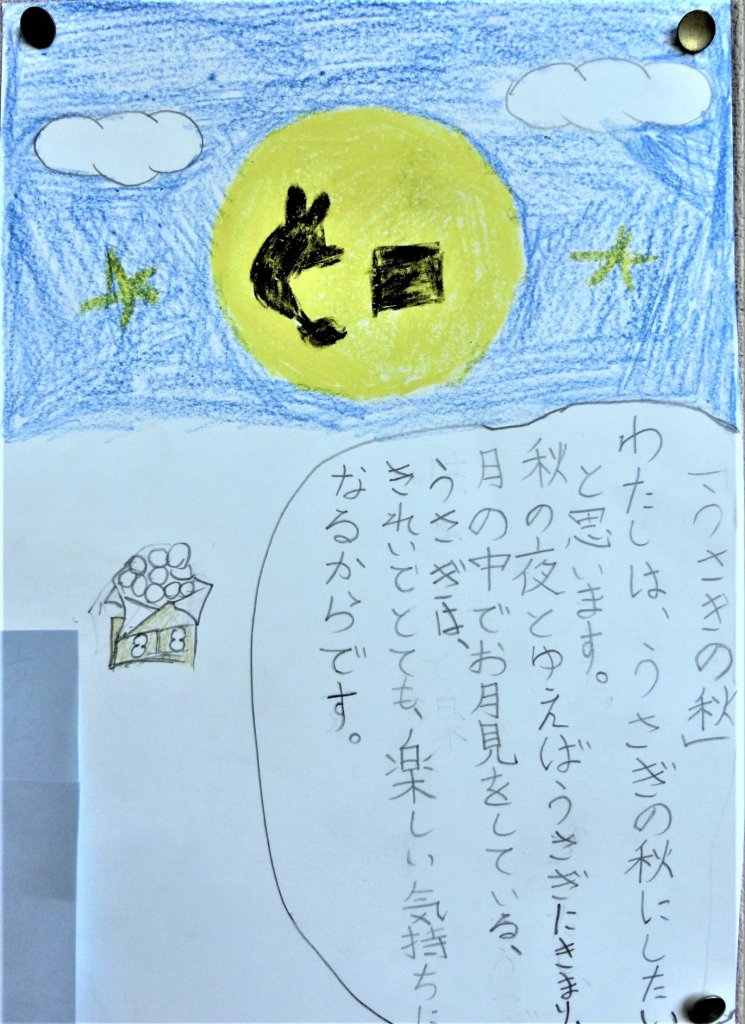 「うさぎの秋」
わたしは、うさぎの秋にしたい
と思います。
秋の夜とゆえばうさぎにきまり、
月の中でお月見をしている、
うさぎは、
きれいでとても、楽しい気持ちに
なるからです。